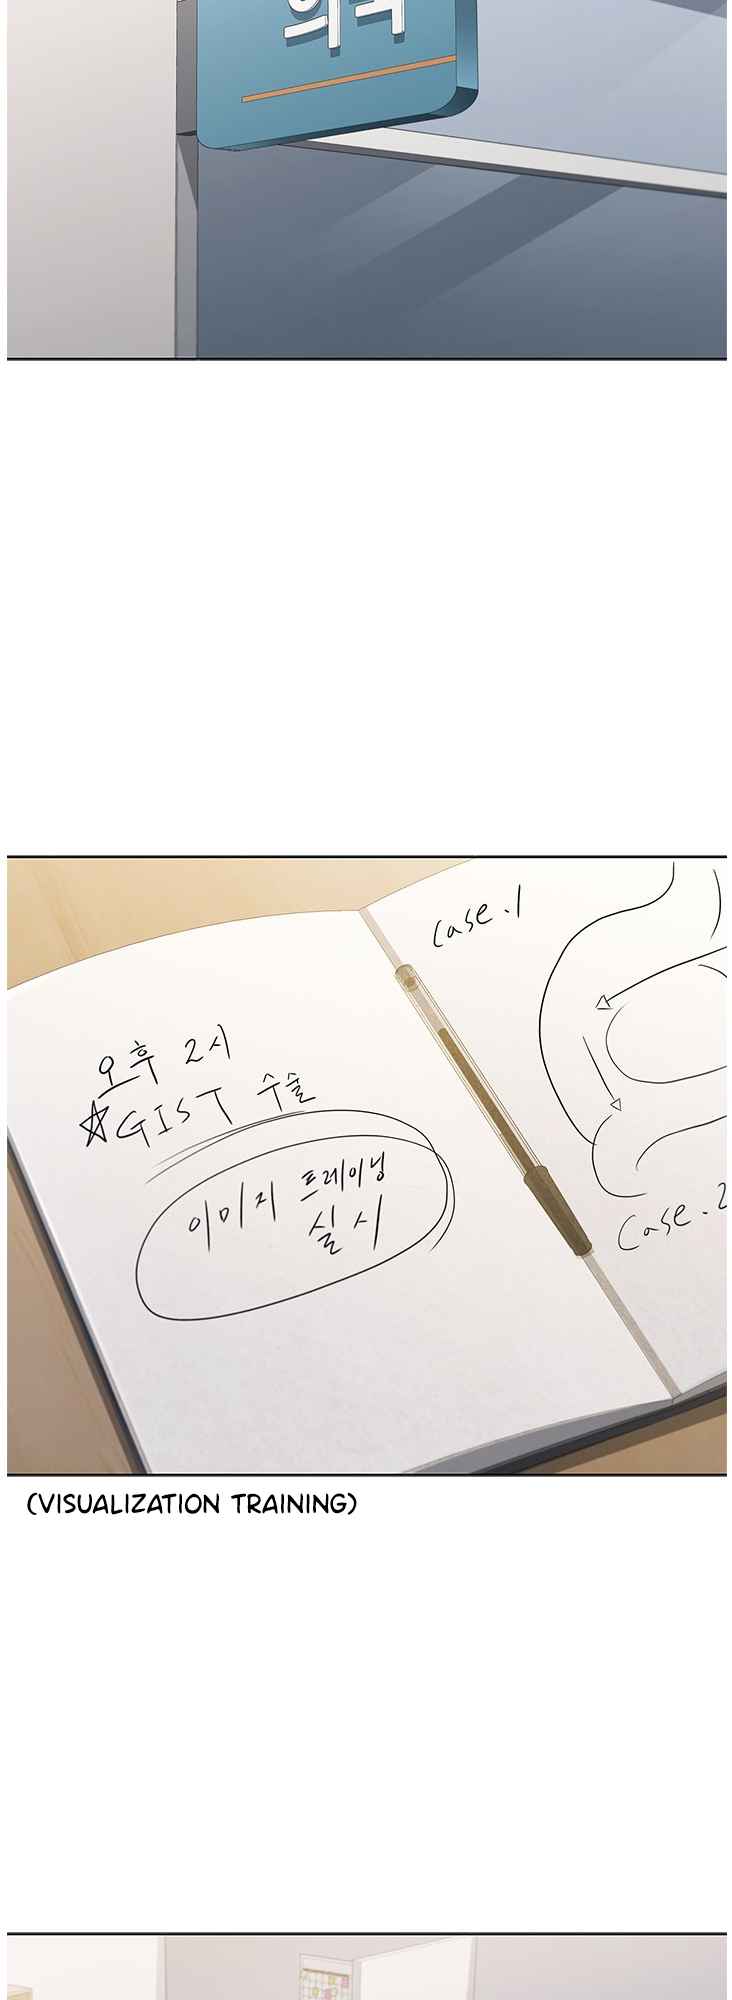 의국
오후 2시
☆GIST 수술
이미지 트레이닝
실시
case.1
case.2
(VISUALIZATION TRAINING)